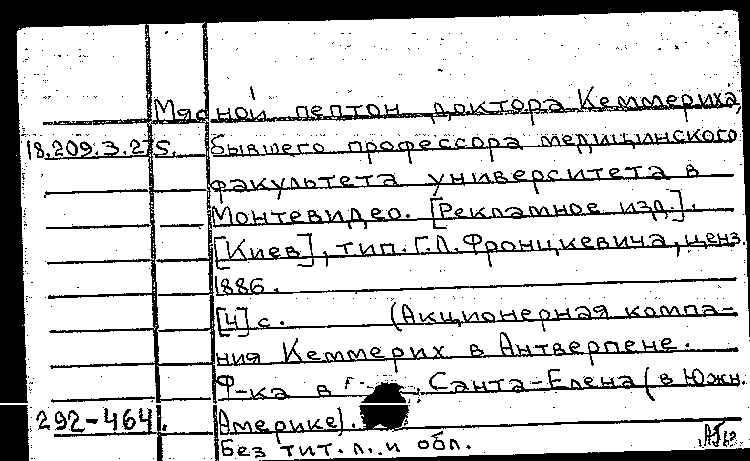 Мясной пептон доктора Кеммериха,
18.209.3.275. бывшего профессора медицинского
факультета университета в
Монтевидео. [Рекламное изд.].
[Киев], тип. Г.Л. Фронцкевича, ценз.
1886.
[4] с. (Акционерная компа-
ния Кеммерих в Антверпене.
Ф-ка в Санта-Елена (в Южн.
292-464. Америке).
Без тит. л. и обл.